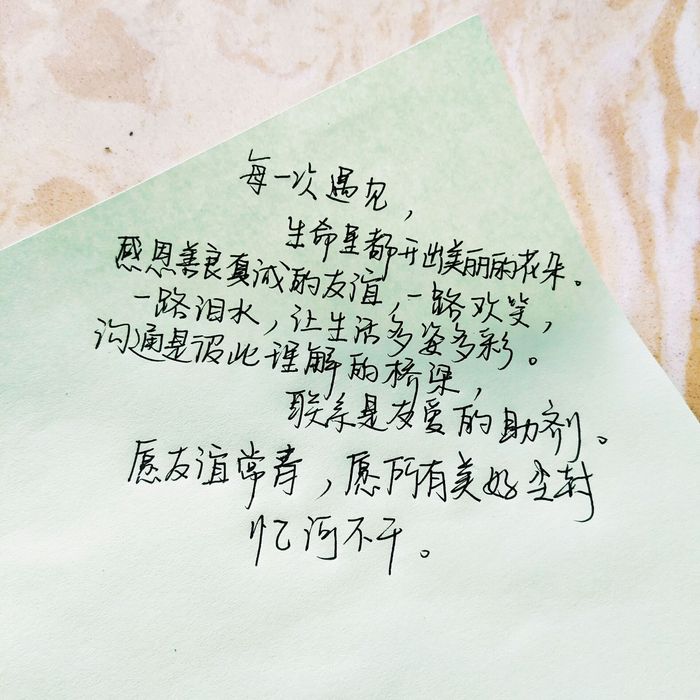 每一次遇见，
生命里都开出美丽的花朵。
感恩善良真诚的友谊，一路欢笑，
一路泪水，让生活多姿多彩。
沟通是彼此理解的桥梁，
联系是友爱的助剂。
愿友谊常青，愿所有美好尘封
忆河不干。